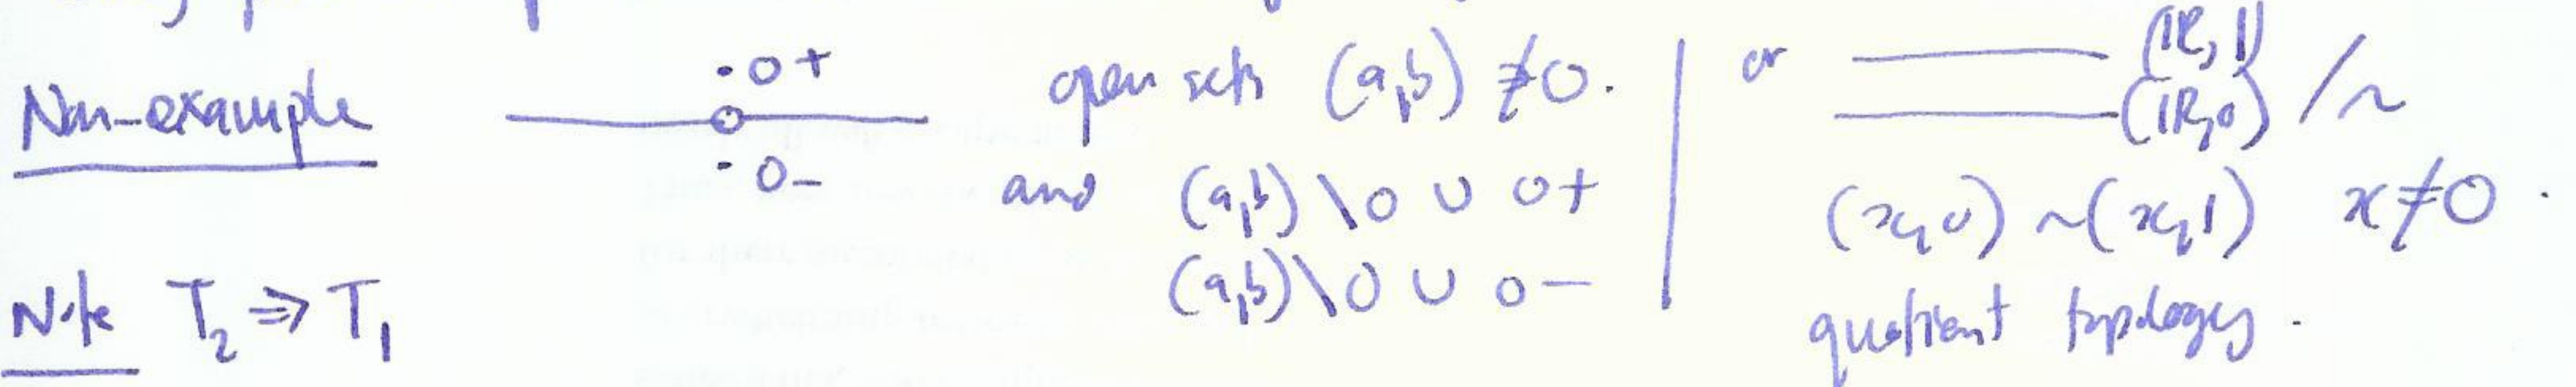 Non-example
· 0+
· 0-
open sets (a,b) ∌ 0.
and (a,b) \ 0 ∪ 0+
(a,b) \ 0 ∪ 0-
or (ℝ,1)
(ℝ,0) / ~
(x,0) ~ (x,1) x ≠ 0.
quotient topology.
Note T₂ ⇒ T₁